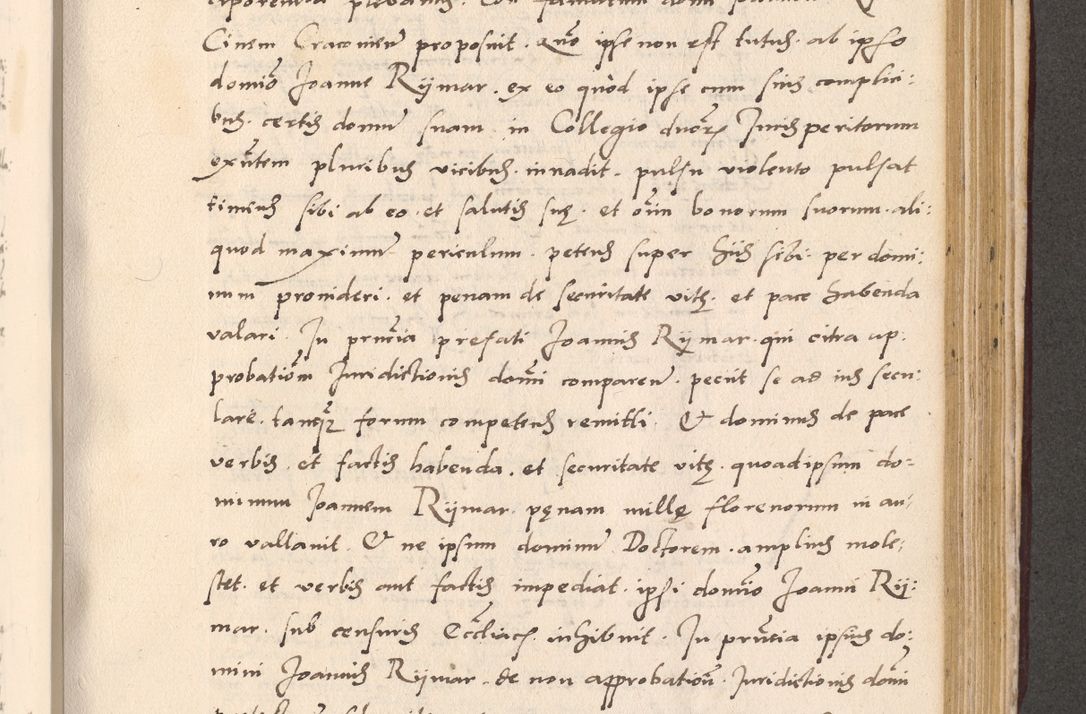 Civem Cracovien̄ proposuit. Quō ipse non est tutus. ab ipso
domīo Joanne Rÿmar. ex eo quòd ipse cum suis complici:
bus. certis domum̄ suam in Collegio duorȝ Jurisperitorum
exn̄tem pluribus vicibus. invadit. pulsu violento pulsat
timens sibi ab eo. et salutis suę. et oīm bonorum suorum. ali:
quod maximum̄ periculum. petens super hijs sibi. per domi:
num provideri. et penam de securitate vitę. et pace habenda
valari. In pn̄tia prefati Joannis Rÿmar. qui citra ap:
probatiōm Jurisdictionis domīni comparen̄. petiit se ad ius secu:
larē. tanqȝ forum competens remitti. Et dominus de pace
verbis. et factis habenda. et securitate vitę. quoad ipsum do=
minum Joannem Rÿmar. pęnam millę florenorum in au:
ro vallavit. Et ne ipsum dominum̄ Doctorem. amplius mole:
stet. et verbis aut factis impediat. ipsi domīo Joanni Rÿ:
mar. sub censuris Ecc̄liacis. inhibuit. In pn̄tia ipsius do:
mini Joannis Rÿmar. de non approbatiōn̄. Jurisdictionis domīni